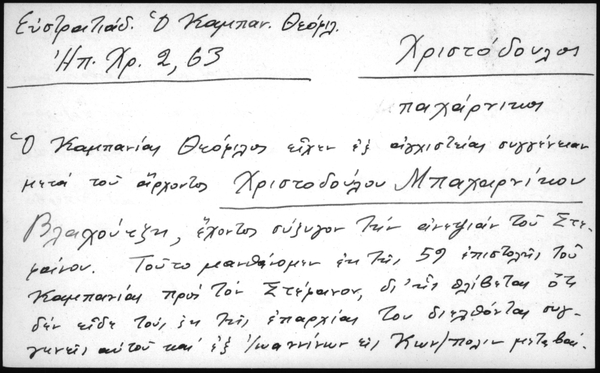 Εὐστρατιάδ. Ὁ Καμπαν. Θεόφιλ.
Ἠπ. Χρ. 2, 63
Χριστόδουλος
παχάρνικος
Ὁ Καμπανίας Θεόφιλος εἶχεν ἐξ ἀγχιστείας συγγένειαν
μετά τοῦ ἄρχοντος Χριστοδούλου Μπαχαρνίκου
Βλαχούτζη, ἔχοντος σύζυγον τήν ἀνεψιάν τοῦ Στε-
φάνου. Τοῦτο μανθάνομεν ἐκ τῆς 59 ἐπιστολῆς τοῦ
Καμπανίας πρός τόν Στέφανον, δι' ἧς θλίβεται ὅτι
δέν εἶδε τούς ἐκ τῆς ἐπαρχίας του διελθόντας συγ-
γενεῖς αὐτοῦ καί ἐξ Ἰωαννίνων εἰς Κων/πολιν μεταβάν.